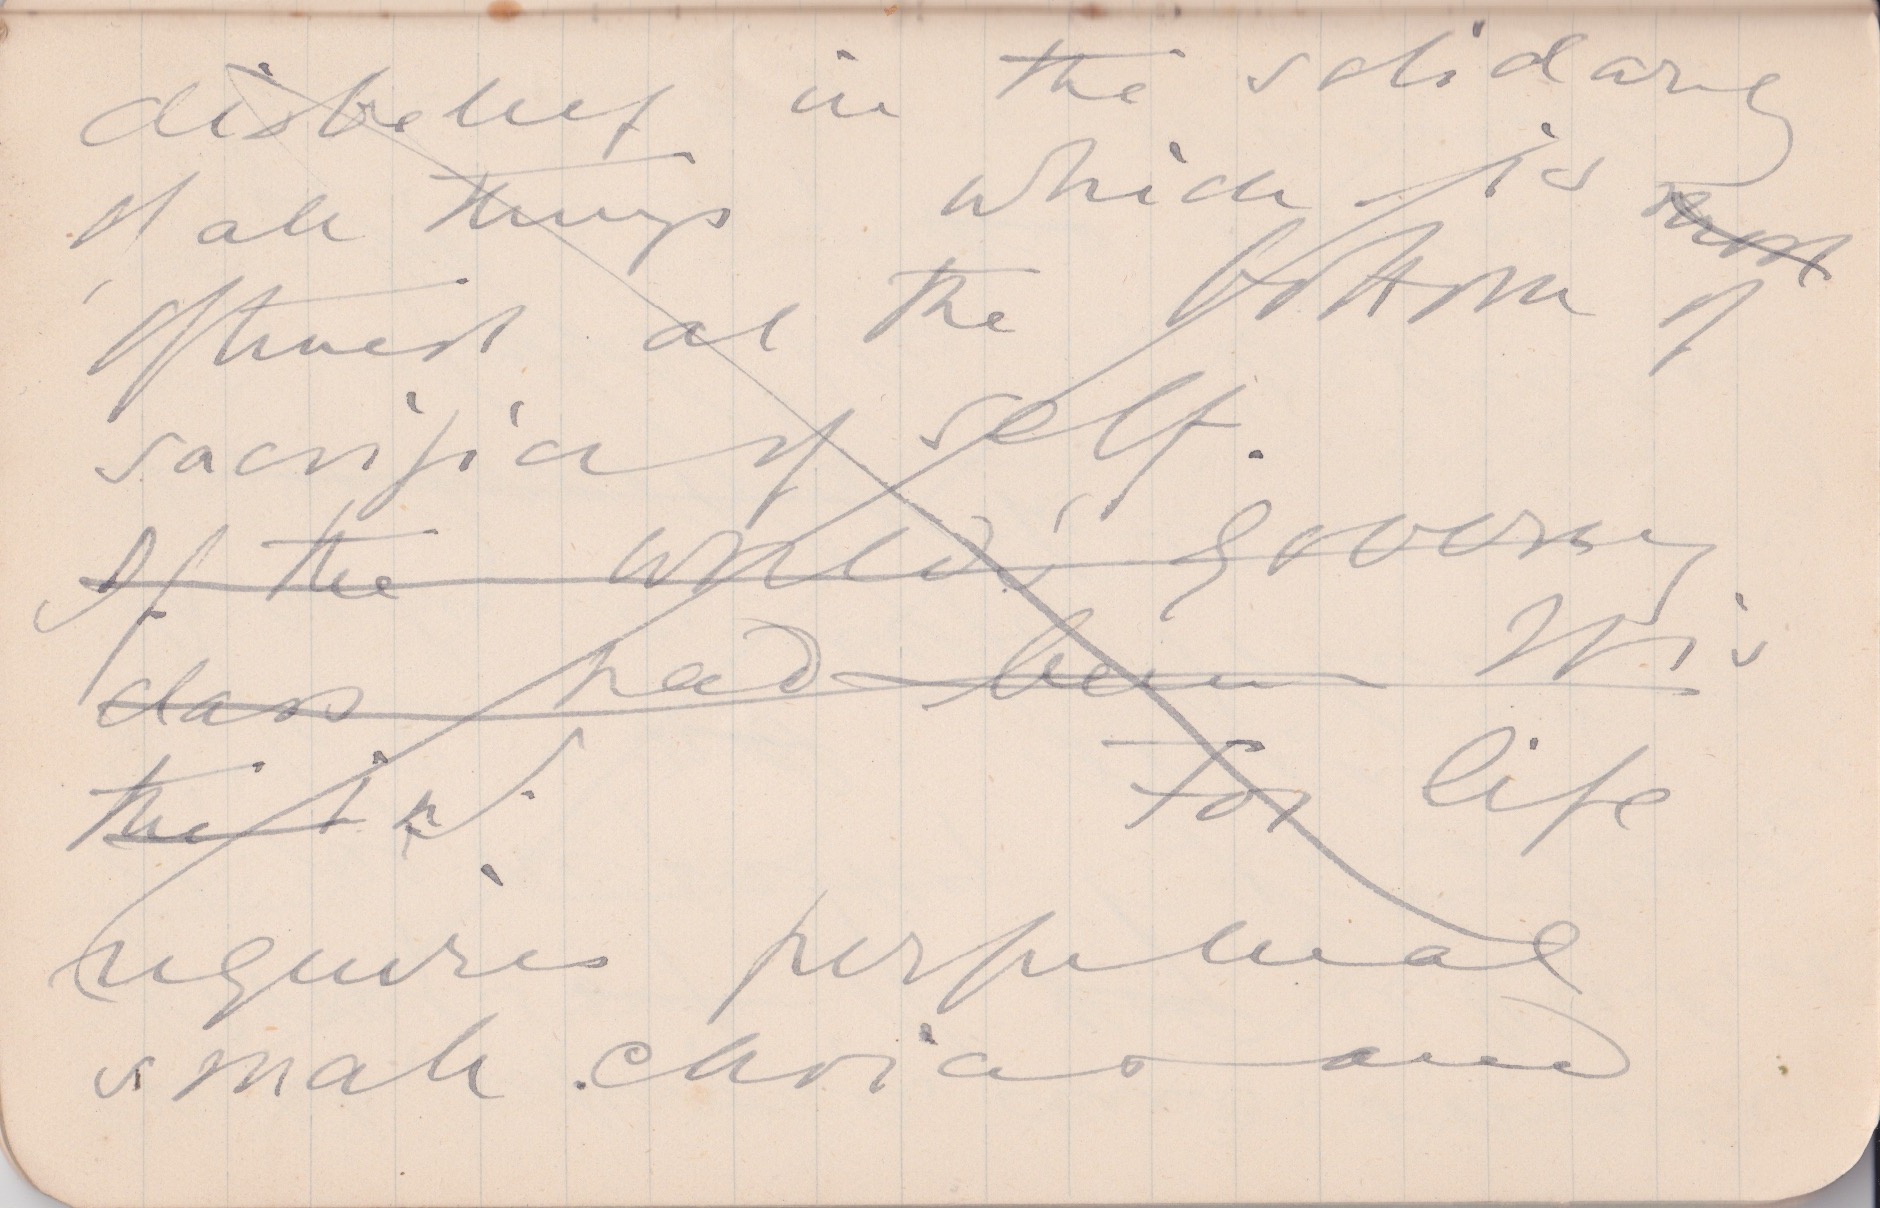 disbelief in the solidarity
of all things which is most
oftenest at the bottom of
sacrifice of self.
If the world's governing
class had been
this
For life
requires perpetual
small choices and